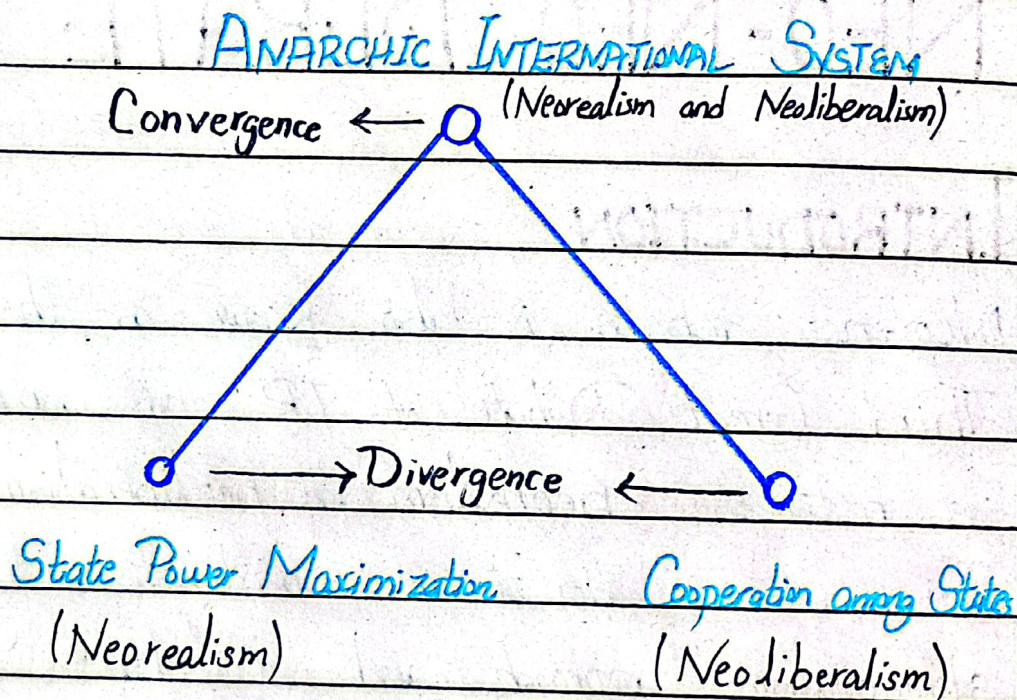 ANARCHIC INTERNATIONAL SYSTEM
Convergence ← (Neorealism and Neoliberalism)
→ Divergence ←
State Power Maximization Cooperation among States
(Neorealism) (Neoliberalism)